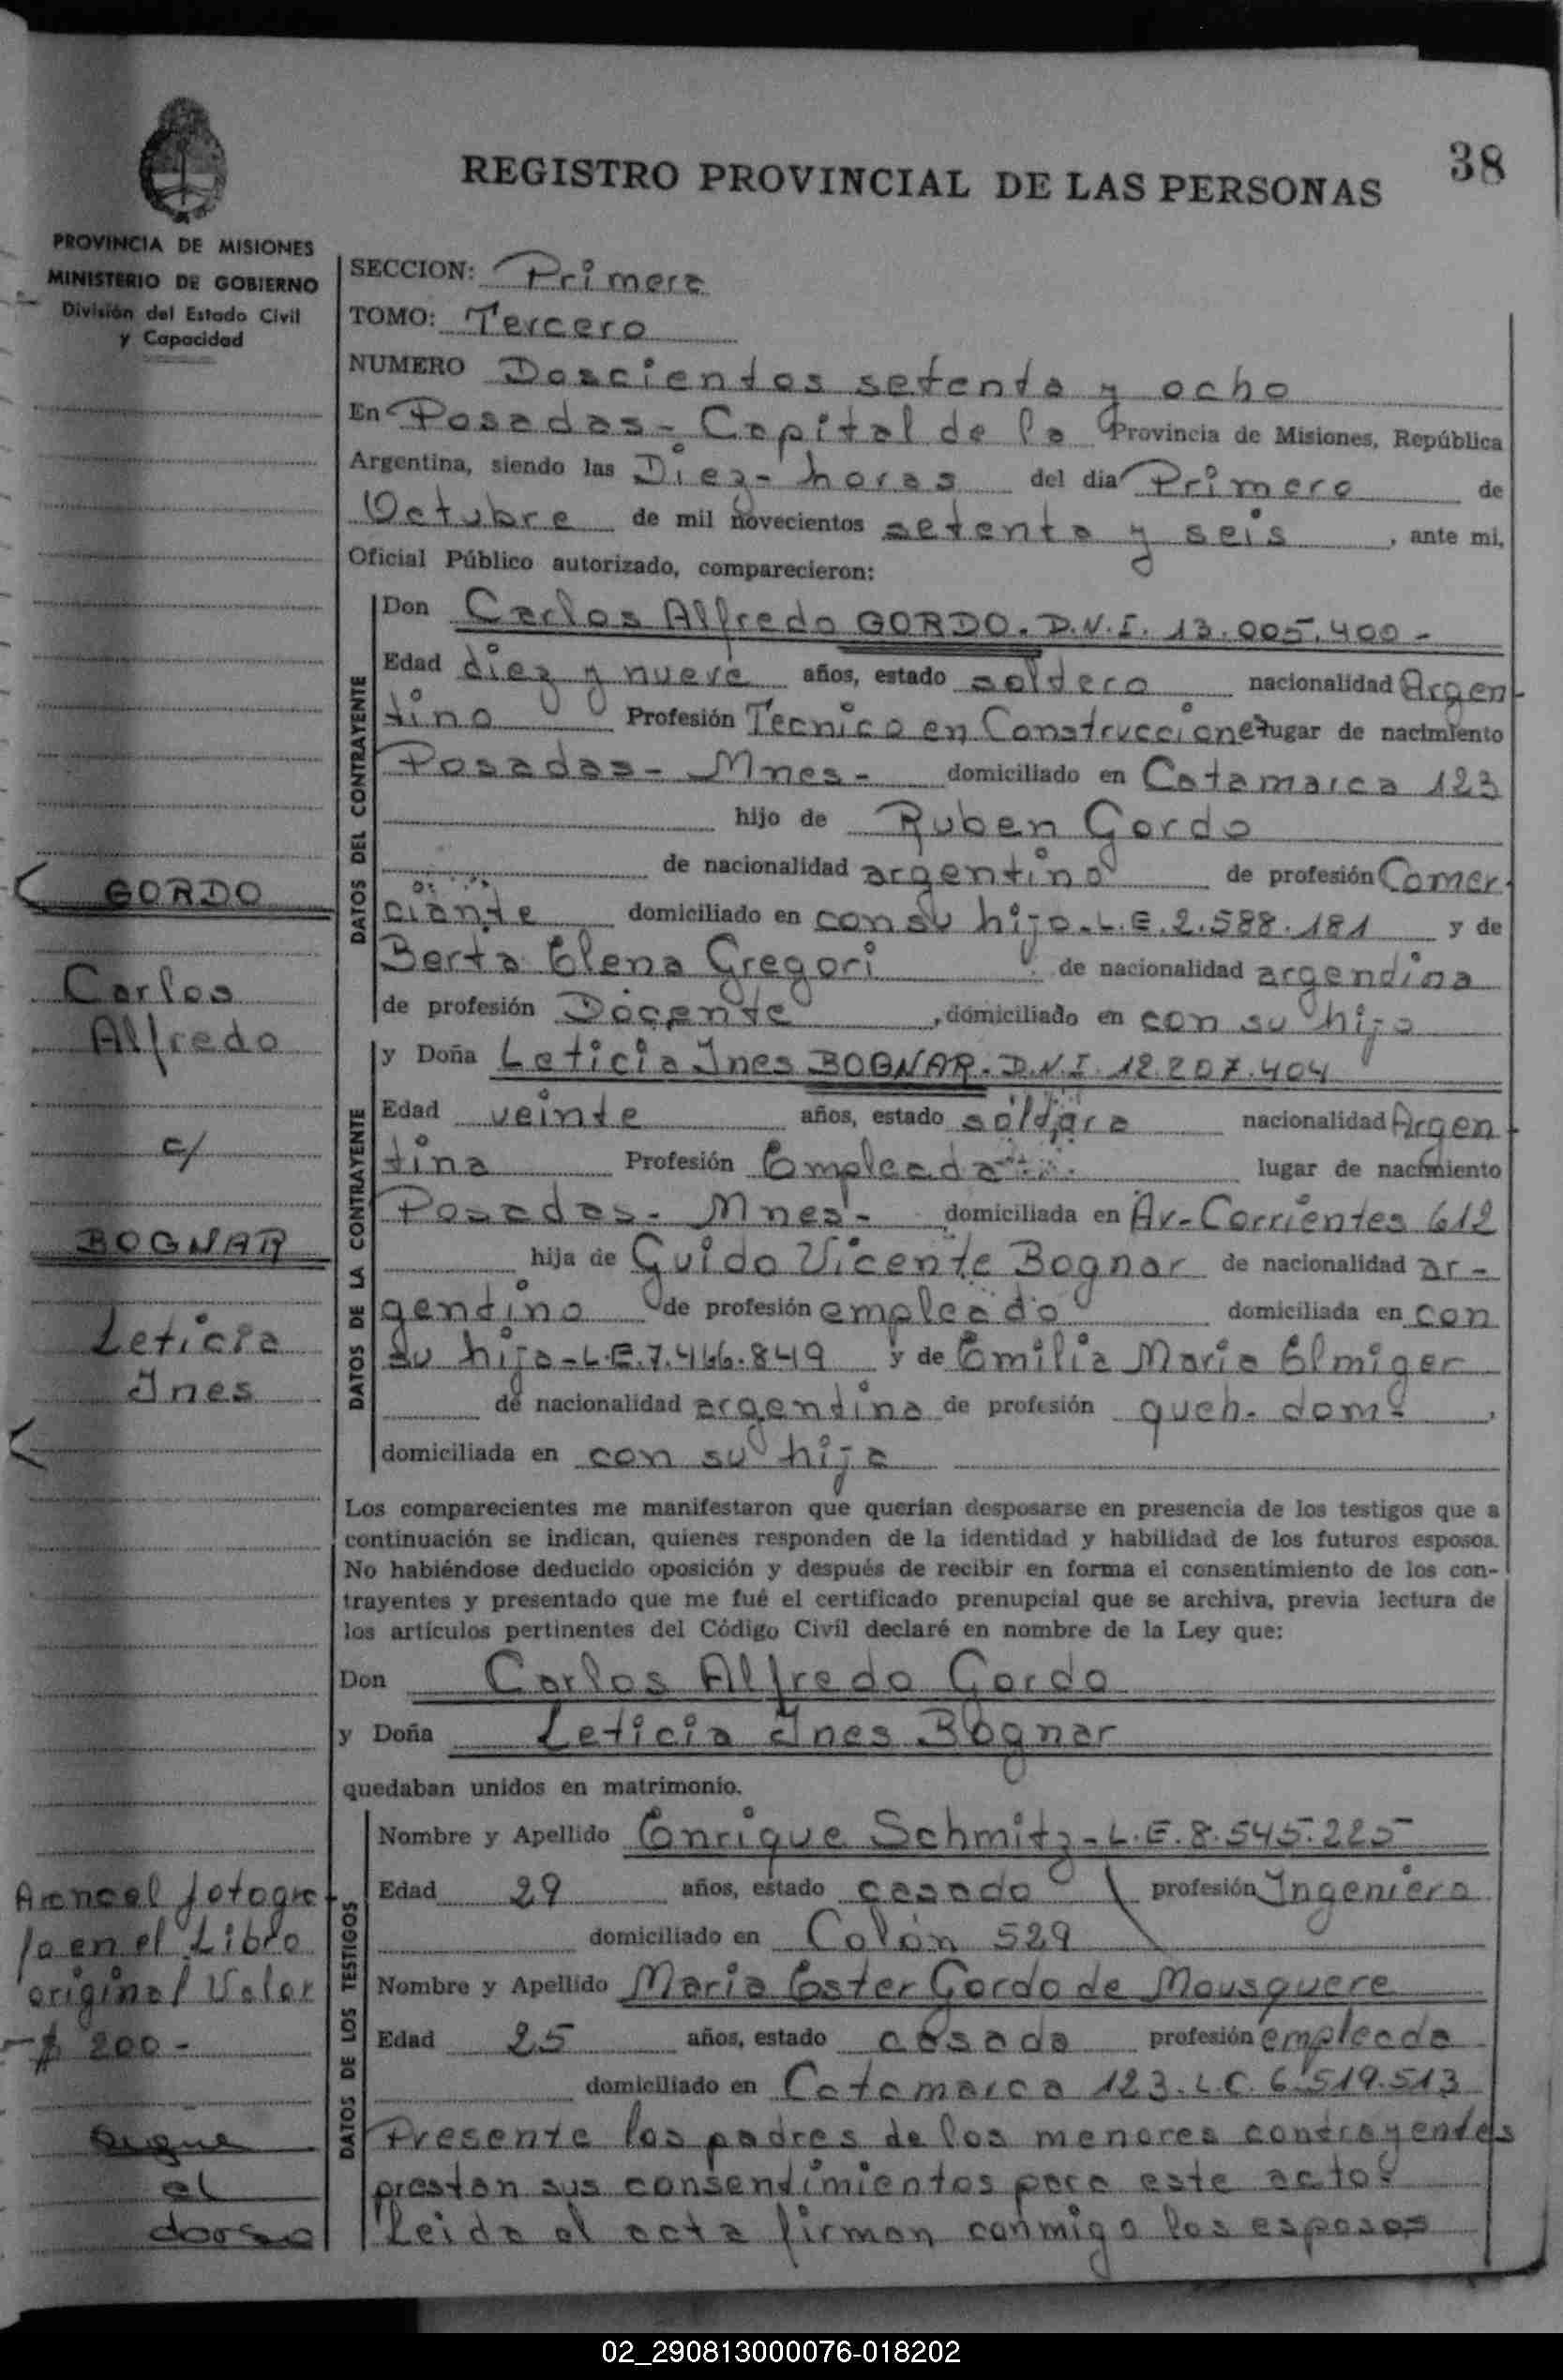 38
REGISTRO PROVINCIAL DE LAS PERSONAS
PROVINCIA DE MISIONES
MINISTERIO DE GOBIERNO
División del Estado Civil
y Capacidad
SECCION: Primera
TOMO: Tercero
NUMERO Doscientos setenta y ocho
En Posadas - Capital de la Provincia de Misiones, República
Argentina, siendo las Diez - horas del dia Primero de
Octubre de mil novecientos setenta y seis, ante mi,
Oficial Público autorizado, comparecieron:
DATOS DEL CONTRAYENTE
Don Carlos Alfredo GORDO. D.N.I. 13.005.400 -
Edad diez y nueve años, estado soltero nacionalidad Argen-
tino Profesión Tecnico en Construcciones lugar de nacimiento
Posadas - Mnes - domiciliado en Catamarca 123
hijo de Ruben Gordo
de nacionalidad argentino de profesión Comer-
ciante domiciliado en con su hijo - L.E. 2.588.181 y de
Berta Elena Gregori de nacionalidad argentina
de profesión Docente, domiciliado en con su hijo
DATOS DE LA CONTRAYENTE
y Doña Leticia Ines BOGNAR. D.N.I. 12.207.404
Edad veinte años, estado soltera nacionalidad Argen-
tina Profesión Empleada lugar de nacimiento
Posadas - Mnes - domiciliada en Av - Corrientes 612
hija de Guido Vicente Bognar de nacionalidad ar-
gentino de profesión empleado domiciliada en con
su hija - L.E. 7.466.849 y de Emilia Maria Elmiger
de nacionalidad argentina de profesión queh. dom -,
domiciliada en con su hija
Los comparecientes me manifestaron que querían desposarse en presencia de los testigos que a
continuación se indican, quienes responden de la identidad y habilidad de los futuros esposos.
No habiéndose deducido oposición y después de recibir en forma el consentimiento de los con-
trayentes y presentado que me fué el certificado prenupcial que se archiva, previa lectura de
los artículos pertinentes del Código Civil declaré en nombre de la Ley que:
Don Carlos Alfredo Gordo
y Doña Leticia Ines Bognar
quedaban unidos en matrimonio.
DATOS DE LOS TESTIGOS
Nombre y Apellido Enrique Schmitz - L.E. 8.545.225
Edad 29 años, estado casado profesión Ingeniero
domiciliado en Colón 529
Nombre y Apellido Maria Ester Gordo de Mousquere
Edad 25 años, estado casada profesión empleada
domiciliado en Catamarca 123. L.C. 6.519.513
Presente los padres de los menores contrayentes
prestan sus consentimientos para este acto.
Leida el acta firman conmigo los esposos
GORDO
Carlos
Alfredo
c/
BOGNAR
Leticia
Ines
Arancel fotogra-
fo en el Libro
original Valor
- $ 200 -
sigue
al
dorso
02_290813000076-018202